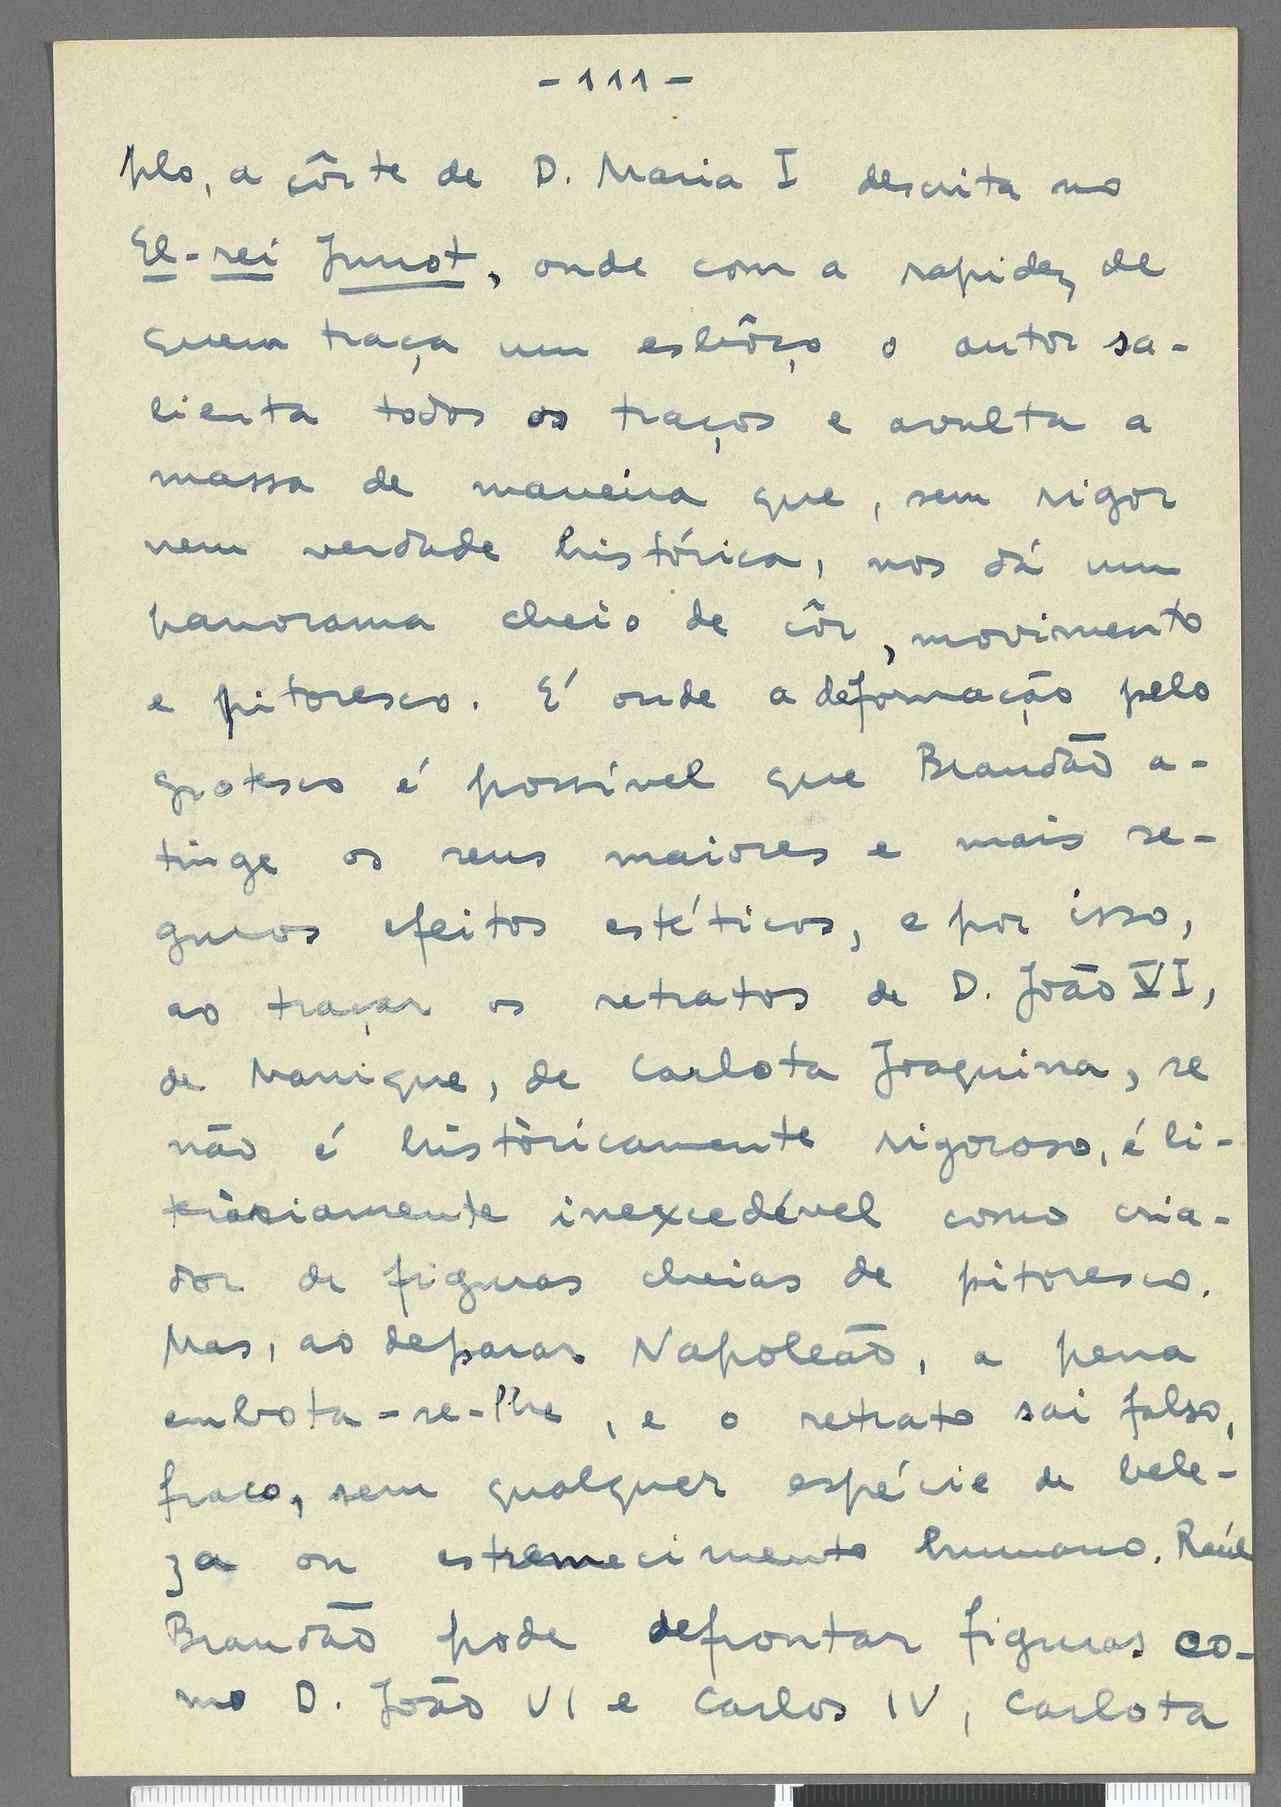 -111-
plo, a côrte de D. Maria I descrita no
El-rei Junot, onde com a rapidez de
quem traça um esbôço o autor sa-
lienta todos os traços e avulta a
massa de maneira que, sem rigor
nem verdade histórica, nos dá um
panorama cheio de côr, movimento
e pitoresco. É onde a deformação pelo
grotesco é possível que Brandão a-
tinge os seus maiores e mais se-
guros efeitos estéticos, e por isso,
ao traçar os retratos de D. João VI,
de Manique, de Carlota Joaquina, se
não é històricamente rigoroso, é li-
teràriamente inexcedível como cria-
dor de figuras cheias de pitoresco.
Mas, ao deparar Napoleão, a pena
embota-se-lhe, e o retrato sai falso,
fraco, sem qualquer espécie de bele-
za ou estremecimento humano. Raúl
Brandão pode defrontar figuras co-
mo D. João VI e Carlos IV, Carlota